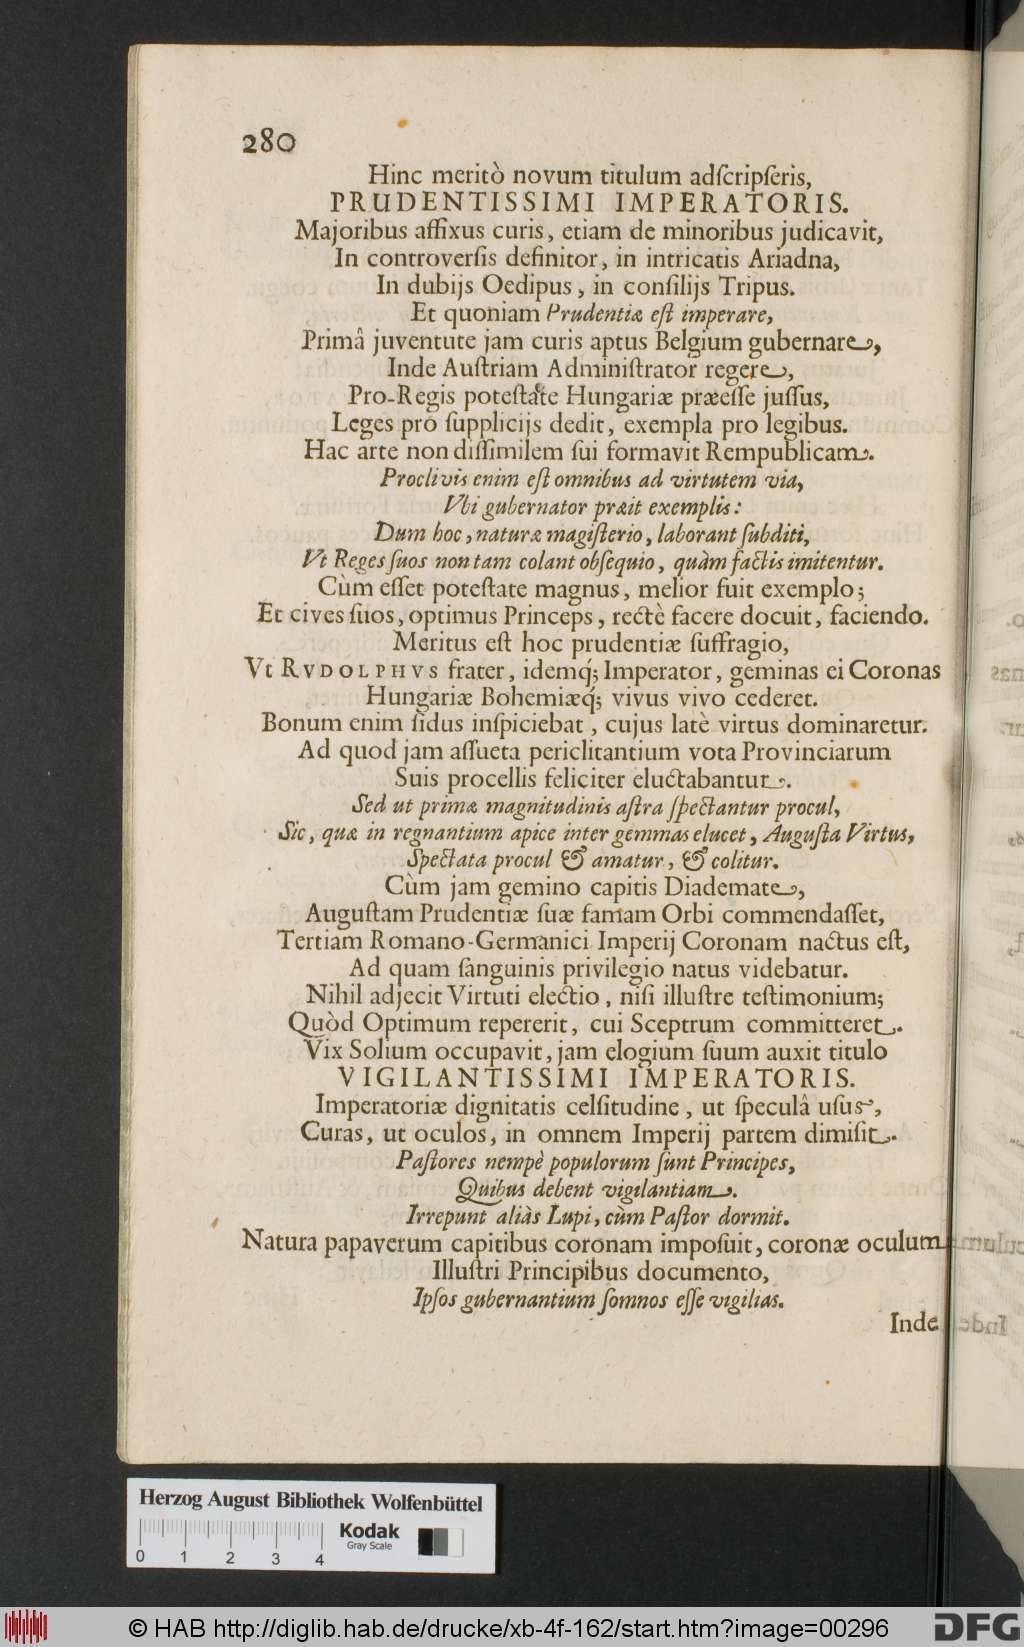 280
Hinc meritò novum titulum adſcripſeris,
PRUDENTISSIMI IMPERATORIS.
Majoribus affixus curis, etiam de minoribus judicavit,
In controverſis definitor, in intricatis Ariadna,
In dubijs Oedipus, in conſilijs Tripus.
Et quoniam Prudentiæ eſt imperare,
Primâ juventute jam curis aptus Belgium gubernare,
Inde Auſtriam Adminiſtrator regere,
Pro-Regis poteſtate Hungariæ præeſſe juſſus,
Leges pro ſupplicijs dedit, exempla pro legibus.
Hac arte non diſſimilem ſui formavit Rempublicam.
Proclivis enim eſt omnibus ad virtutem via,
Vbi gubernator præit exemplis:
Dum hoc, naturæ magiſterio, laborant ſubditi,
Vt Reges ſuos non tam colant obſequio, quàm factis imitentur.
Cùm eſſet poteſtate magnus, melior fuit exemplo;
Et cives ſuos, optimus Princeps, rectè facere docuit, faciendo.
Meritus eſt hoc prudentiæ ſuffragio,
Vt RVDOLPHVS frater, idemq́; Imperator, geminas ei Coronas
Hungariæ Bohemiæq́; vivus vivo cederet.
Bonum enim ſidus inſpiciebat, cujus latè virtus dominaretur.
Ad quod jam aſſueta periclitantium vota Provinciarum
Suis procellis feliciter eluctabantur.
Sed ut primæ magnitudinis aſtra ſpectantur procul,
Sic, quæ in regnantium apice inter gemmas elucet, Auguſta Virtus,
Spectata procul & amatur, & colitur.
Cùm jam gemino capitis Diademate,
Auguſtam Prudentiæ ſuæ famam Orbi commendaſſet,
Tertiam Romano-Germanici Imperij Coronam nactus eſt,
Ad quam ſanguinis privilegio natus videbatur.
Nihil adjecit Virtuti electio, niſi illuſtre teſtimonium;
Quòd Optimum repererit, cui Sceptrum committeret.
Vix Solium occupavit, jam elogium ſuum auxit titulo
VIGILANTISSIMI IMPERATORIS.
Imperatoriæ dignitatis celſitudine, ut ſpeculâ uſus,
Curas, ut oculos, in omnem Imperij partem dimiſit.
Paſtores nempè populorum ſunt Principes,
Quibus debent vigilantiam.
Irrepunt aliàs Lupi, cùm Paſtor dormit.
Natura papaverum capitibus coronam impoſuit, coronæ oculum
Illuſtri Principibus documento,
Ipſos gubernantium ſomnos eſſe vigilias.
Inde
Herzog August Bibliothek Wolfenbüttel
Kodak
Gray Scale
0 1 2 3 4
© HAB http://diglib.hab.de/drucke/xb-4f-162/start.htm?image=00296
DFG